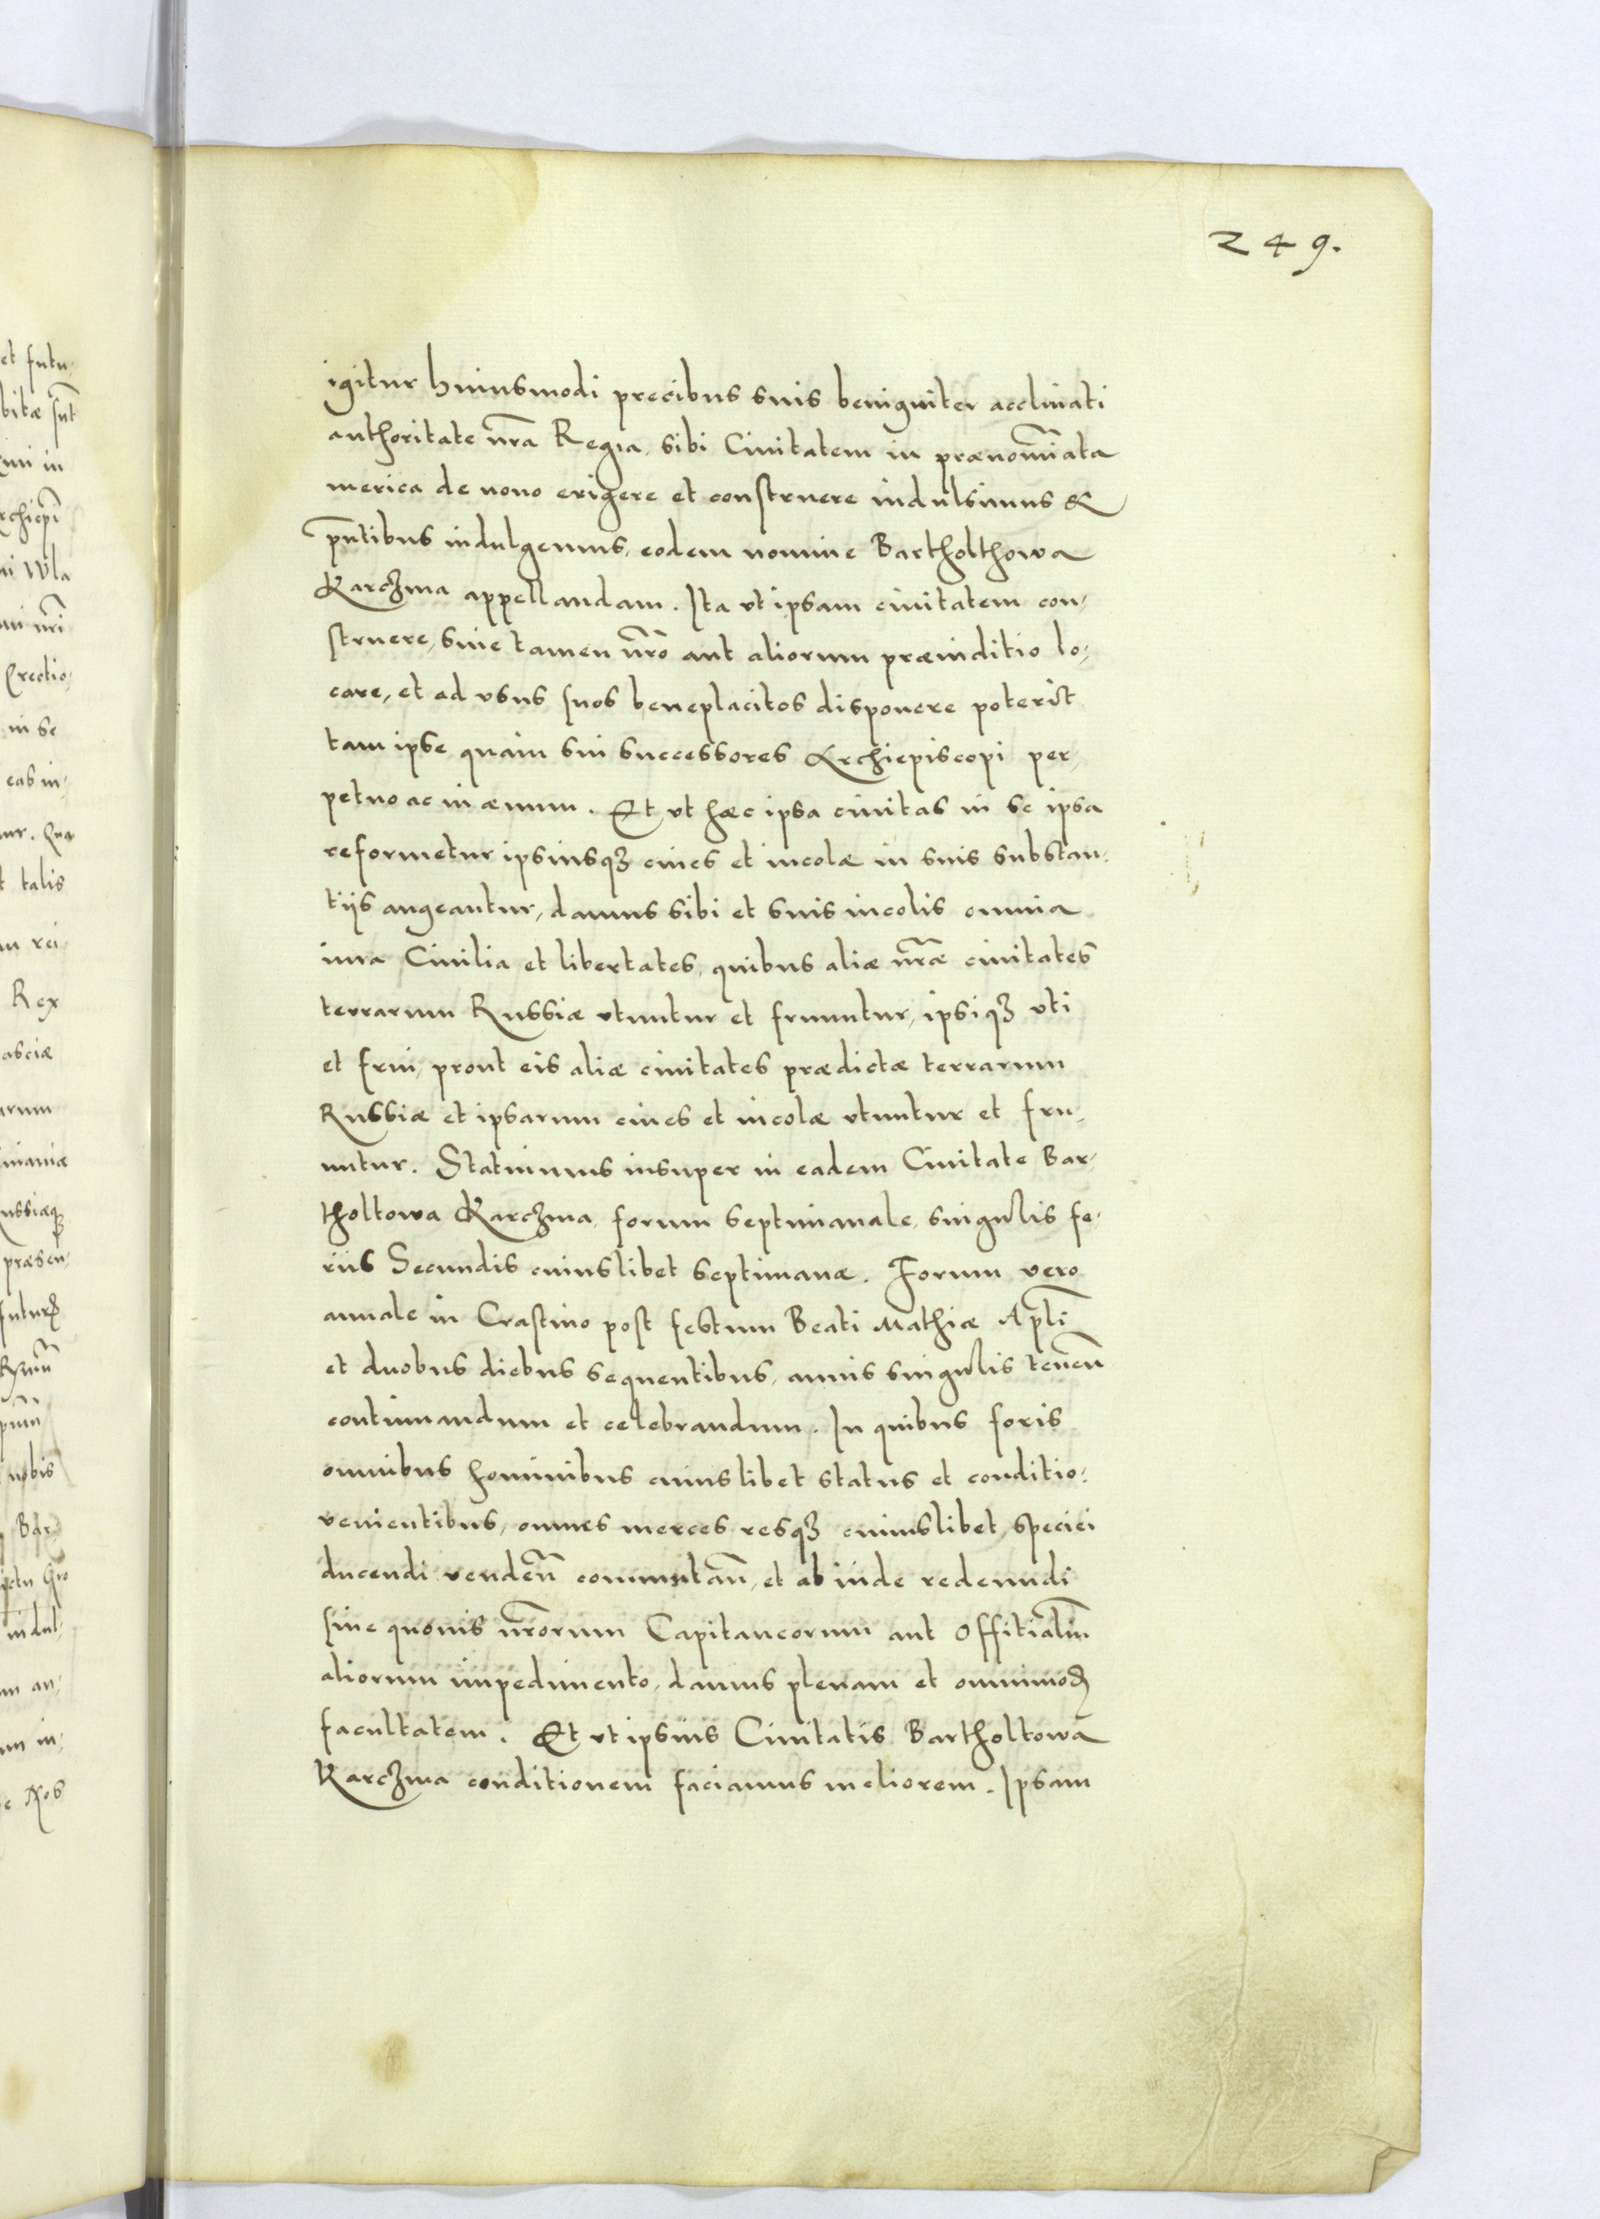 249.
igitur huiusmodi precibus suis benigniter acclinati
authoritate nr̃a Regia, sibi Ciuitatem in prænoĩata
merica de nouo erigere et construere indulsimus &
pñtibus indulgemus, eodem nomine Bartholthowa
Karczma appellandam. Ita vt ipsam ciuitatem con-
struere, sine tamen nr̃o aut aliorum præiuditio lo-
care, et ad vsus suos beneplacitos disponere poterit
tam ipse quàm sui successores Archiepiscopi per-
petuo ac in æuum. Et vt hæc ipsa ciuitas in se ipsa
reformetur ipsiusqȝ ciues et incolæ in suis substan-
tijs augeantur, damus sibi et suis incolis omnia
iura Ciuilia et libertates, quibus aliæ nr̃æ ciuitates
terrarum Russiæ vtuntur et fruuntur, ipsiqȝ vti
et frui, prout eis aliæ ciuitates prædictæ terrarum
Russiæ et ipsarum ciues et incolæ vtuntur et fru-
untur. Statuimus insuper in eadem Ciuitate Bar-
tholtowa Karczma, forum septimanale, singulis fe-
riis Secundis cuiuslibet septimanæ. Forum vero
annale in Crastino post festum Beati Mathiæ Apl̃i
et duobus diebus sequentibus, annis singulis teneñ
continuandum et celebrandum. In quibus foris
omnibus hominibus cuiuslibet status et conditio-
venientibus, omnes merces resqȝ cuiuslibet speciei
ducendi vendeñ commutañ, et ab inde redeundi
sine quouis nr̃orum Capitaneorum aut Offitialiũ
aliorum impedimento, damus plenam et omnimođ
facultatem. Et vt ipsius Ciuitatis Bartholtowa
Karczma conditionem faciamus meliorem. Ipsam